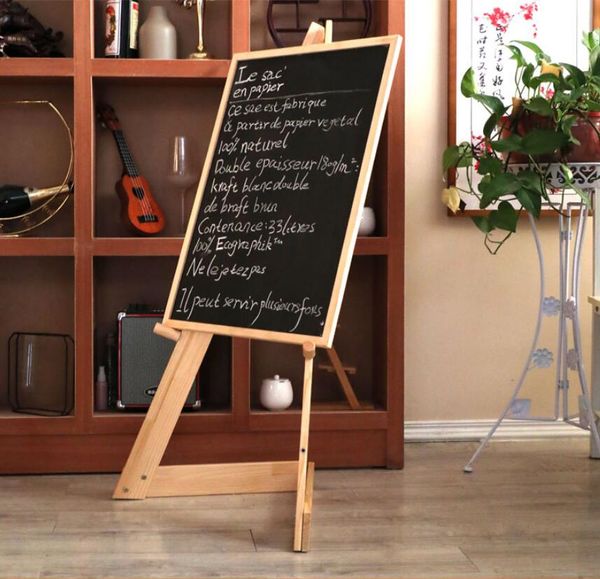 Le sac'
en papier
Ce sac est fabrique
à partir de papier vegetal
100% naturel
Double epaisseur 180g/m²:
kraft blanc double
de braft brun
Contenance: 33 litres
100% Ecographik™
Ne le jetez pas
Il peut servir plusieurs fois